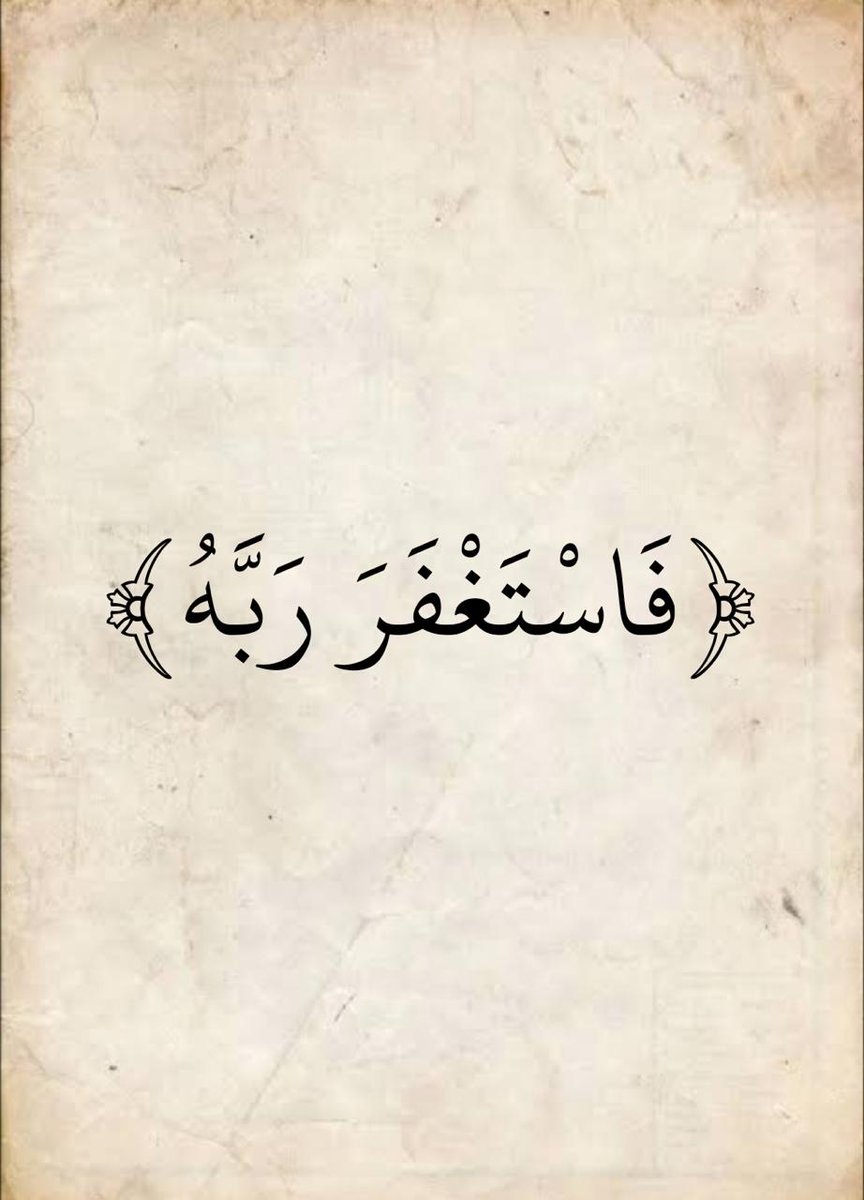 ﴿فَاسْتَغْفَرَ رَبَّهُ﴾